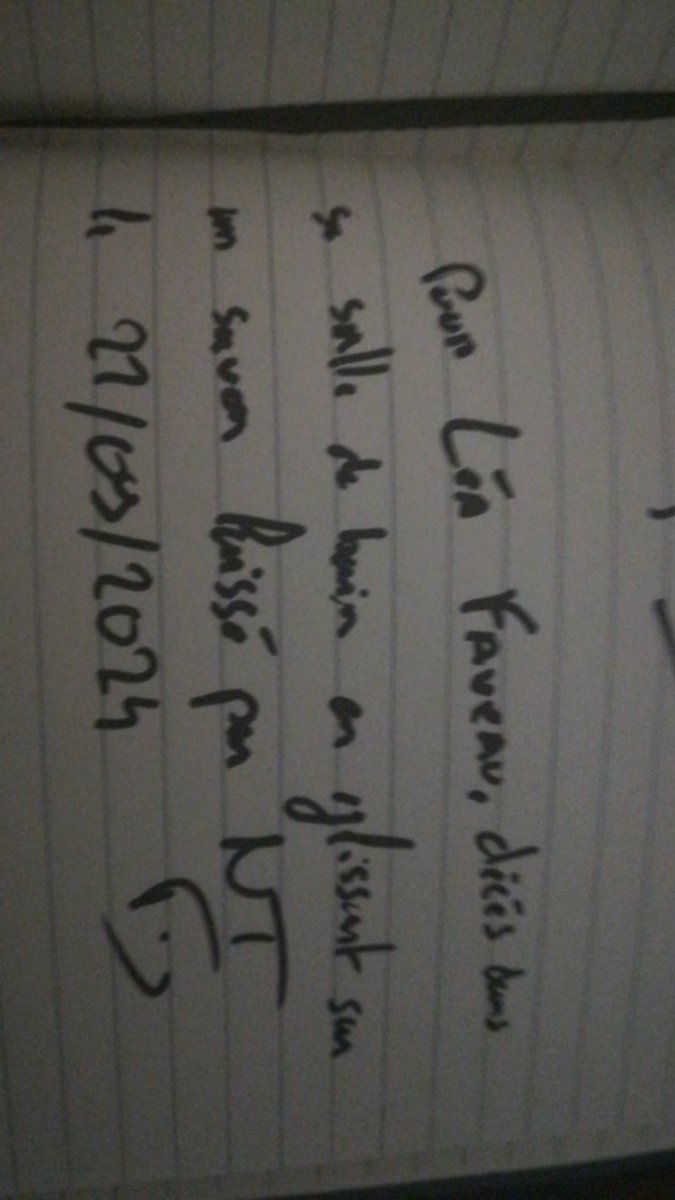 Pour Léa Faveau, décès dans
sa salle de bain en glissant sur
un savon laissé par NT
le 22/03/2024